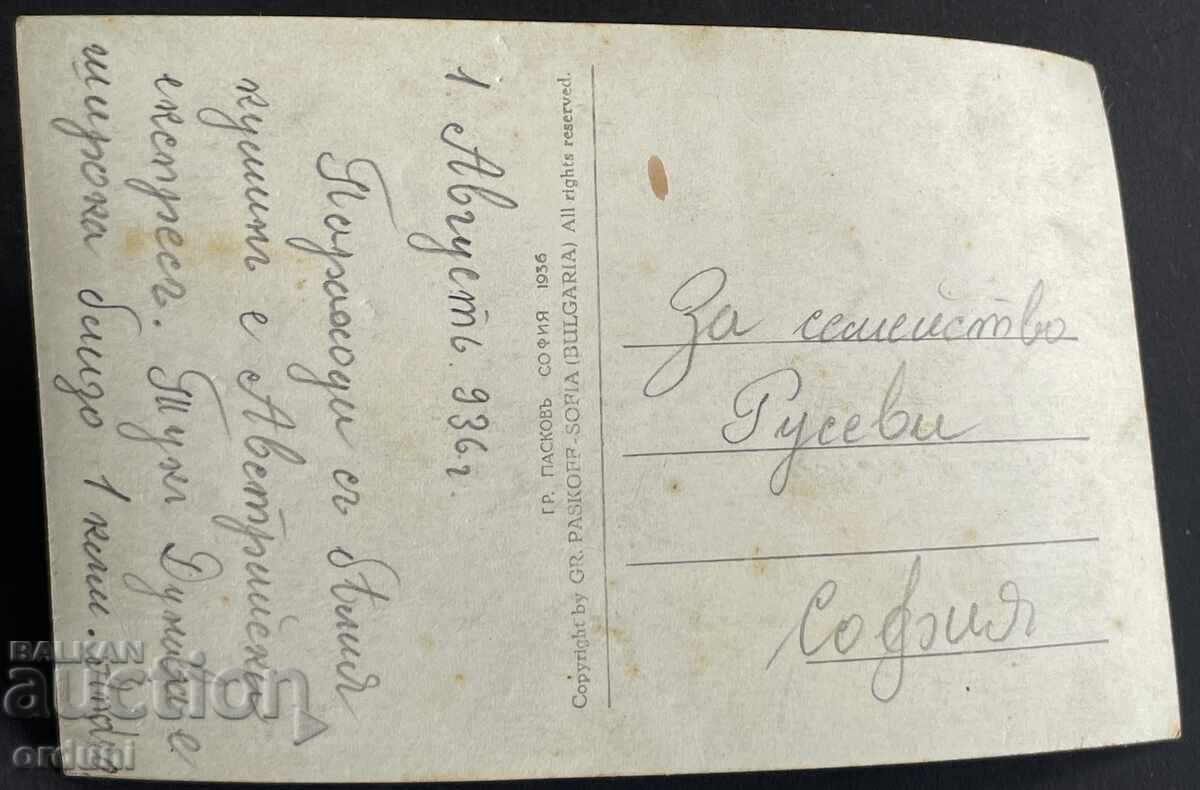 1. Августъ. 936 г.
Параходи съ бѣлия
куминъ е Австрийски
експресъ. Тукъ Дунава е
широка близо 1 клм.
ГР. ПАСКОВЪ СОФИЯ 1936
Copyright by GR. PASKOFF-SOFIA (BULGARIA) All rights reserved.
За семейство
Русеви
София
BALKAN
auction
orduni